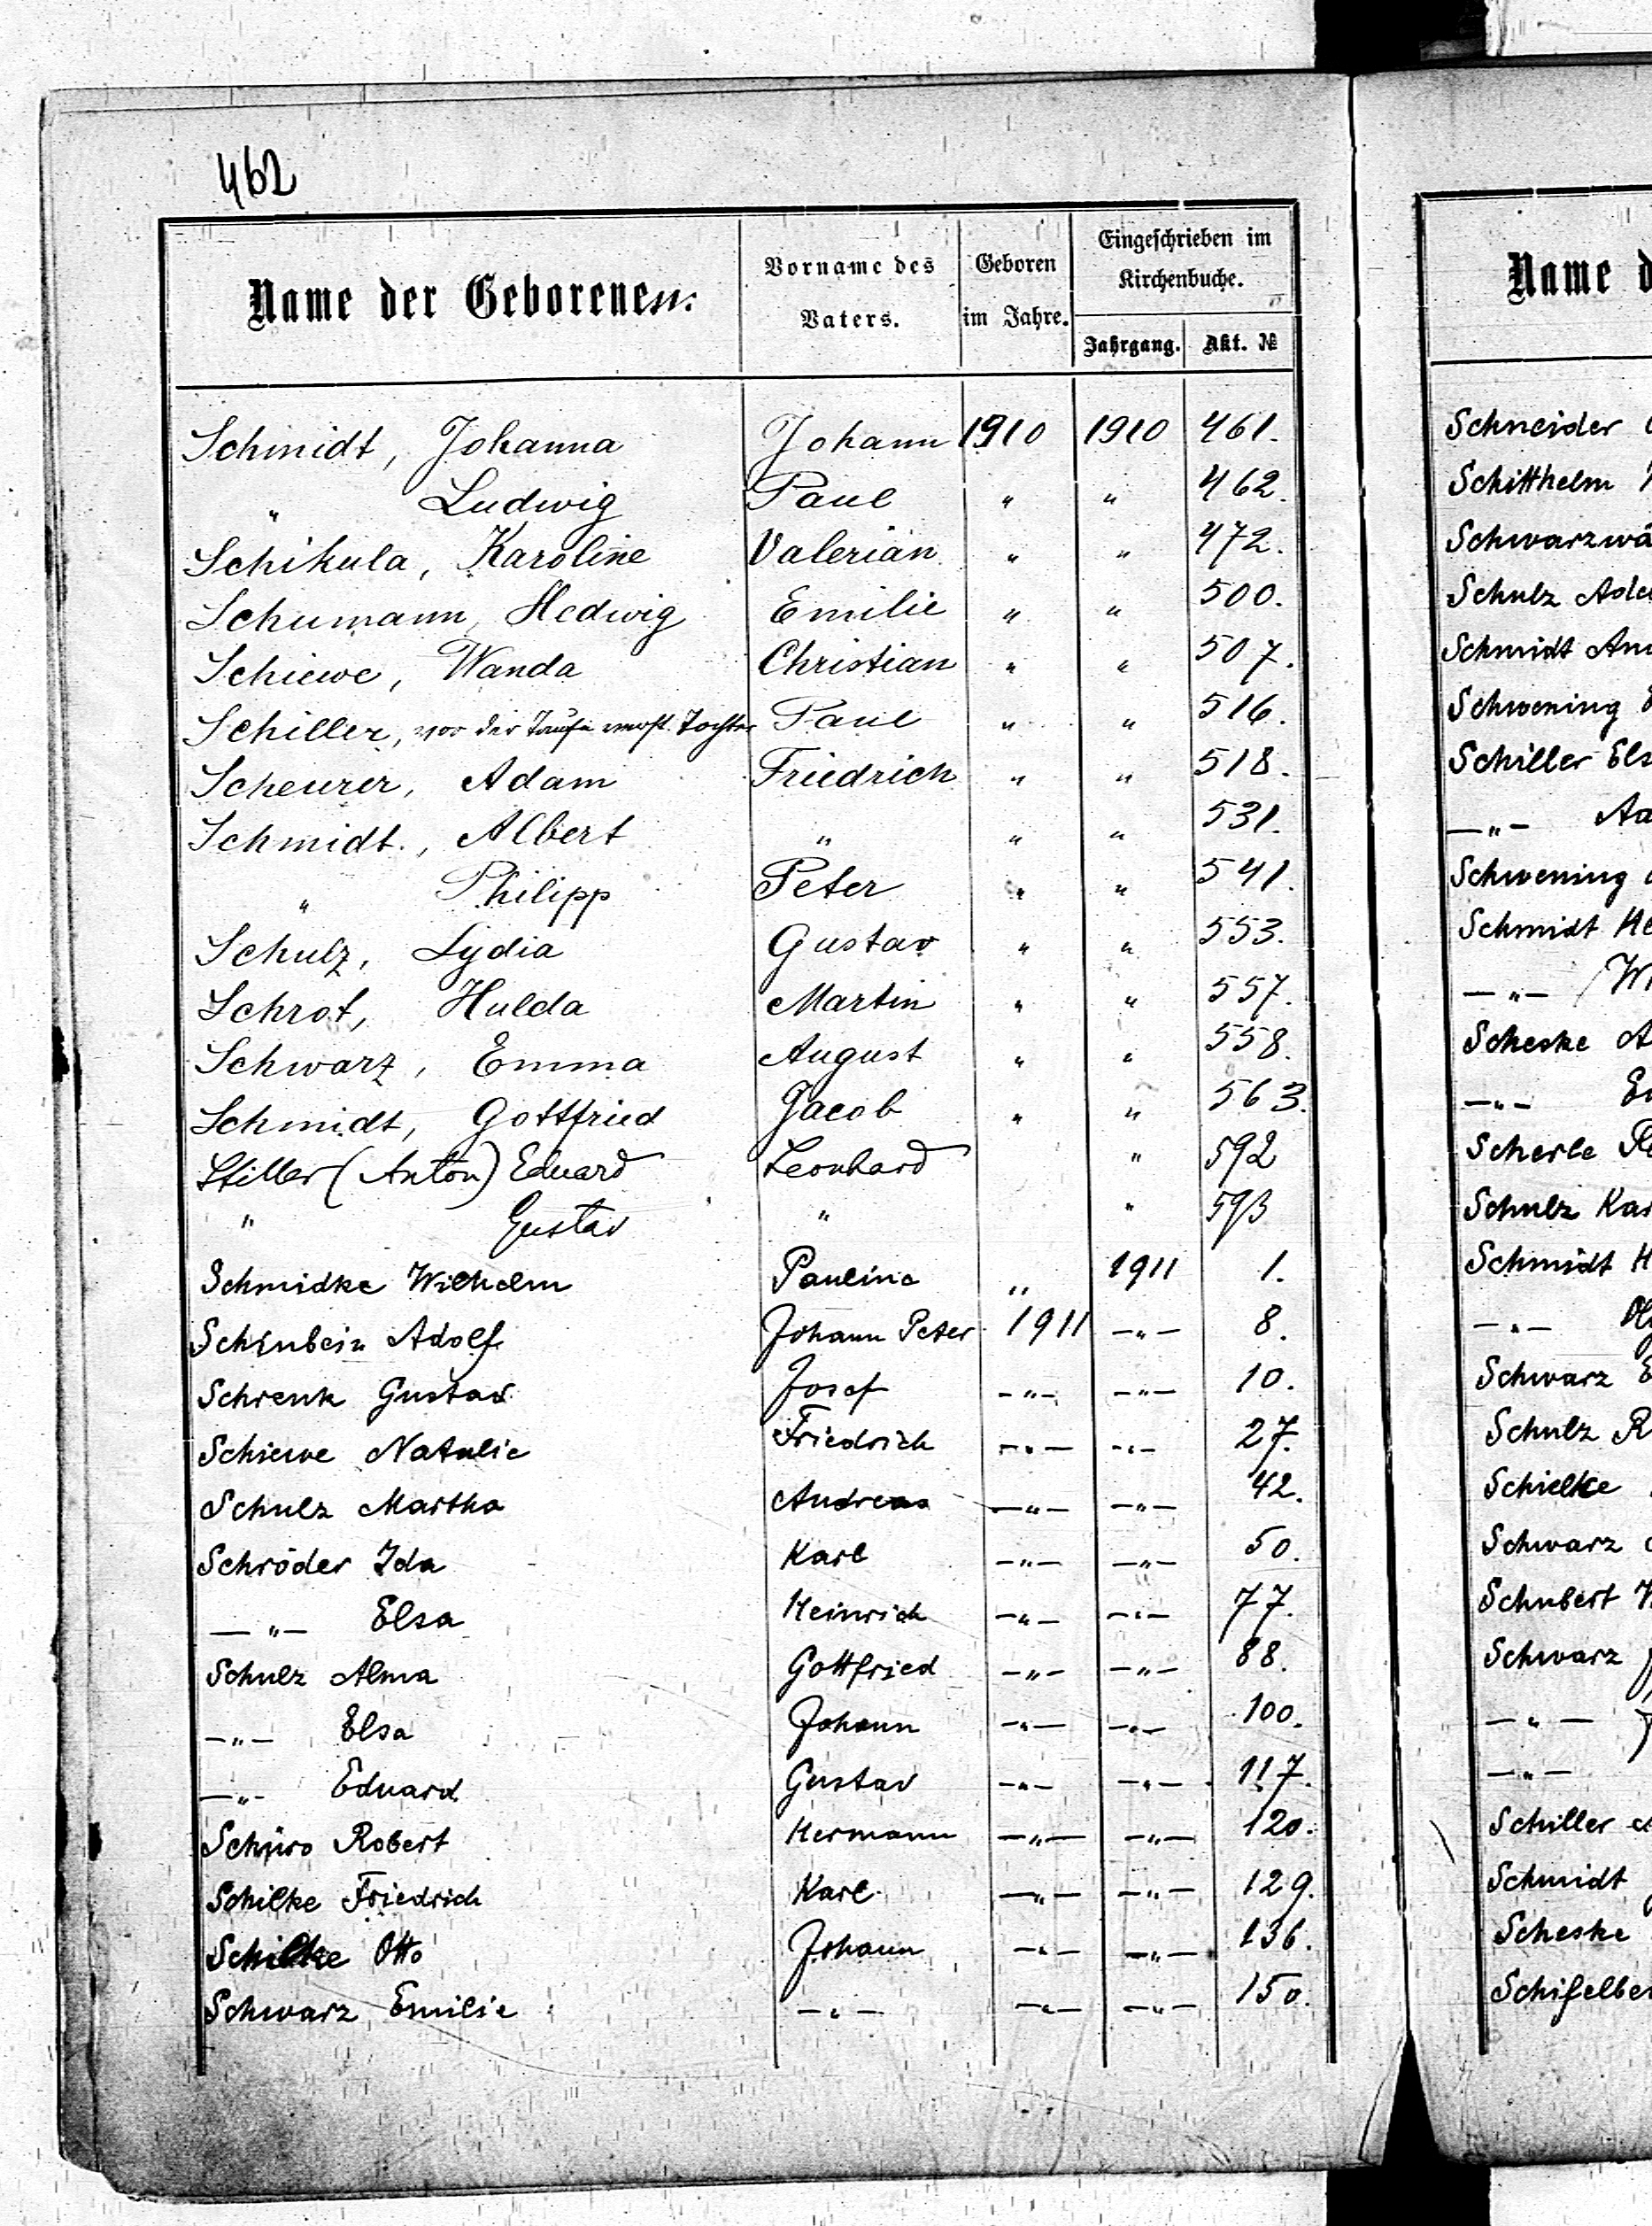 462
Name der Geborenen. Vorname des Vaters. Geboren im Jahre. Eingeschrieben im Kirchenbuche. Jahrgang. Akt. №
Schmidt, Johanna Johann 1910 1910 461.
" Ludwig Paul " " 462.
Schikula, Karoline Valerian " " 472.
Schumann, Hedwig Emilie " " 500.
Schiewe, Wanda Christian " " 507.
Schiller, vor der Taufe verst. Tochter Paul " " 516.
Scheurer, Adam Friedrich " " 518.
Schmidt, Albert " " " 531.
" Philipp Peter " " 541.
Schulz, Lydia Gustav " " 553.
Schrot, Hulda Martin " " 557.
Schwarz, Emma August " " 558.
Schmidt, Gottfried Jacob " " 563.
Stiller (Anton) Eduard Leonhard " 592
" Gustav " " 593
Schmidke Wilhelm Pauline " 1911 1.
Schinbein Adolf Johann Peter 1911 —"— 8.
Schrenk Gustav Josef —"— —"— 10.
Schiewe Natalie Friedrich —"— —"— 27.
Schulz Martha Andreas —"— —"— 42.
Schröder Ida Karl —"— —"— 50.
—"— Elsa Heinrich —"— —"— 77.
Schulz Alma Gottfried —"— —"— 88.
—"— Elsa Johann —"— —"— 100.
—"— Eduard Gustav —"— —"— 117.
Robert Hermann —"— —"— 120.
Schilke Friedrich Karl —"— —"— 129.
Schilke Otto Johann —"— —"— 136.
Schwarz Emilie —"— —"— —"— 150.
Name d
Schneider
Schitthelm
Schwarzwä
Schulz Ade
Schmidt
Schwening
Schiller Els
—"—
Schwening
Schmidt He
—"— W
Scheske A
—"— E
Scherle R
Schulz Kar
Schmidt H
—"—
Schwarz E
Schulz R
Schielke
Schwarz
Schubert
Schwarz
—"—
—"—
Schiller
Schmidt
Scheske
Schifelbe